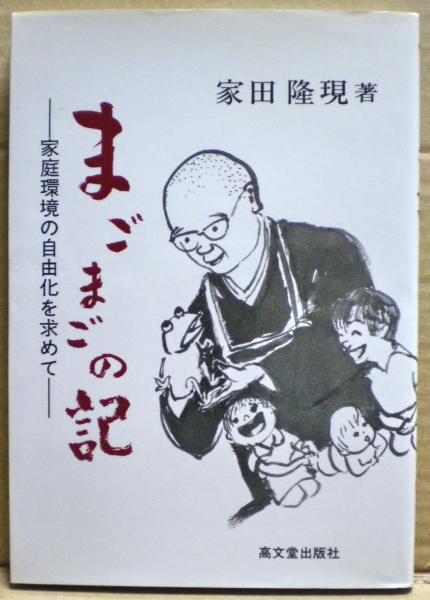 家田隆現著
まごまごの記
──家庭環境の自由化を求めて──
高文堂出版社